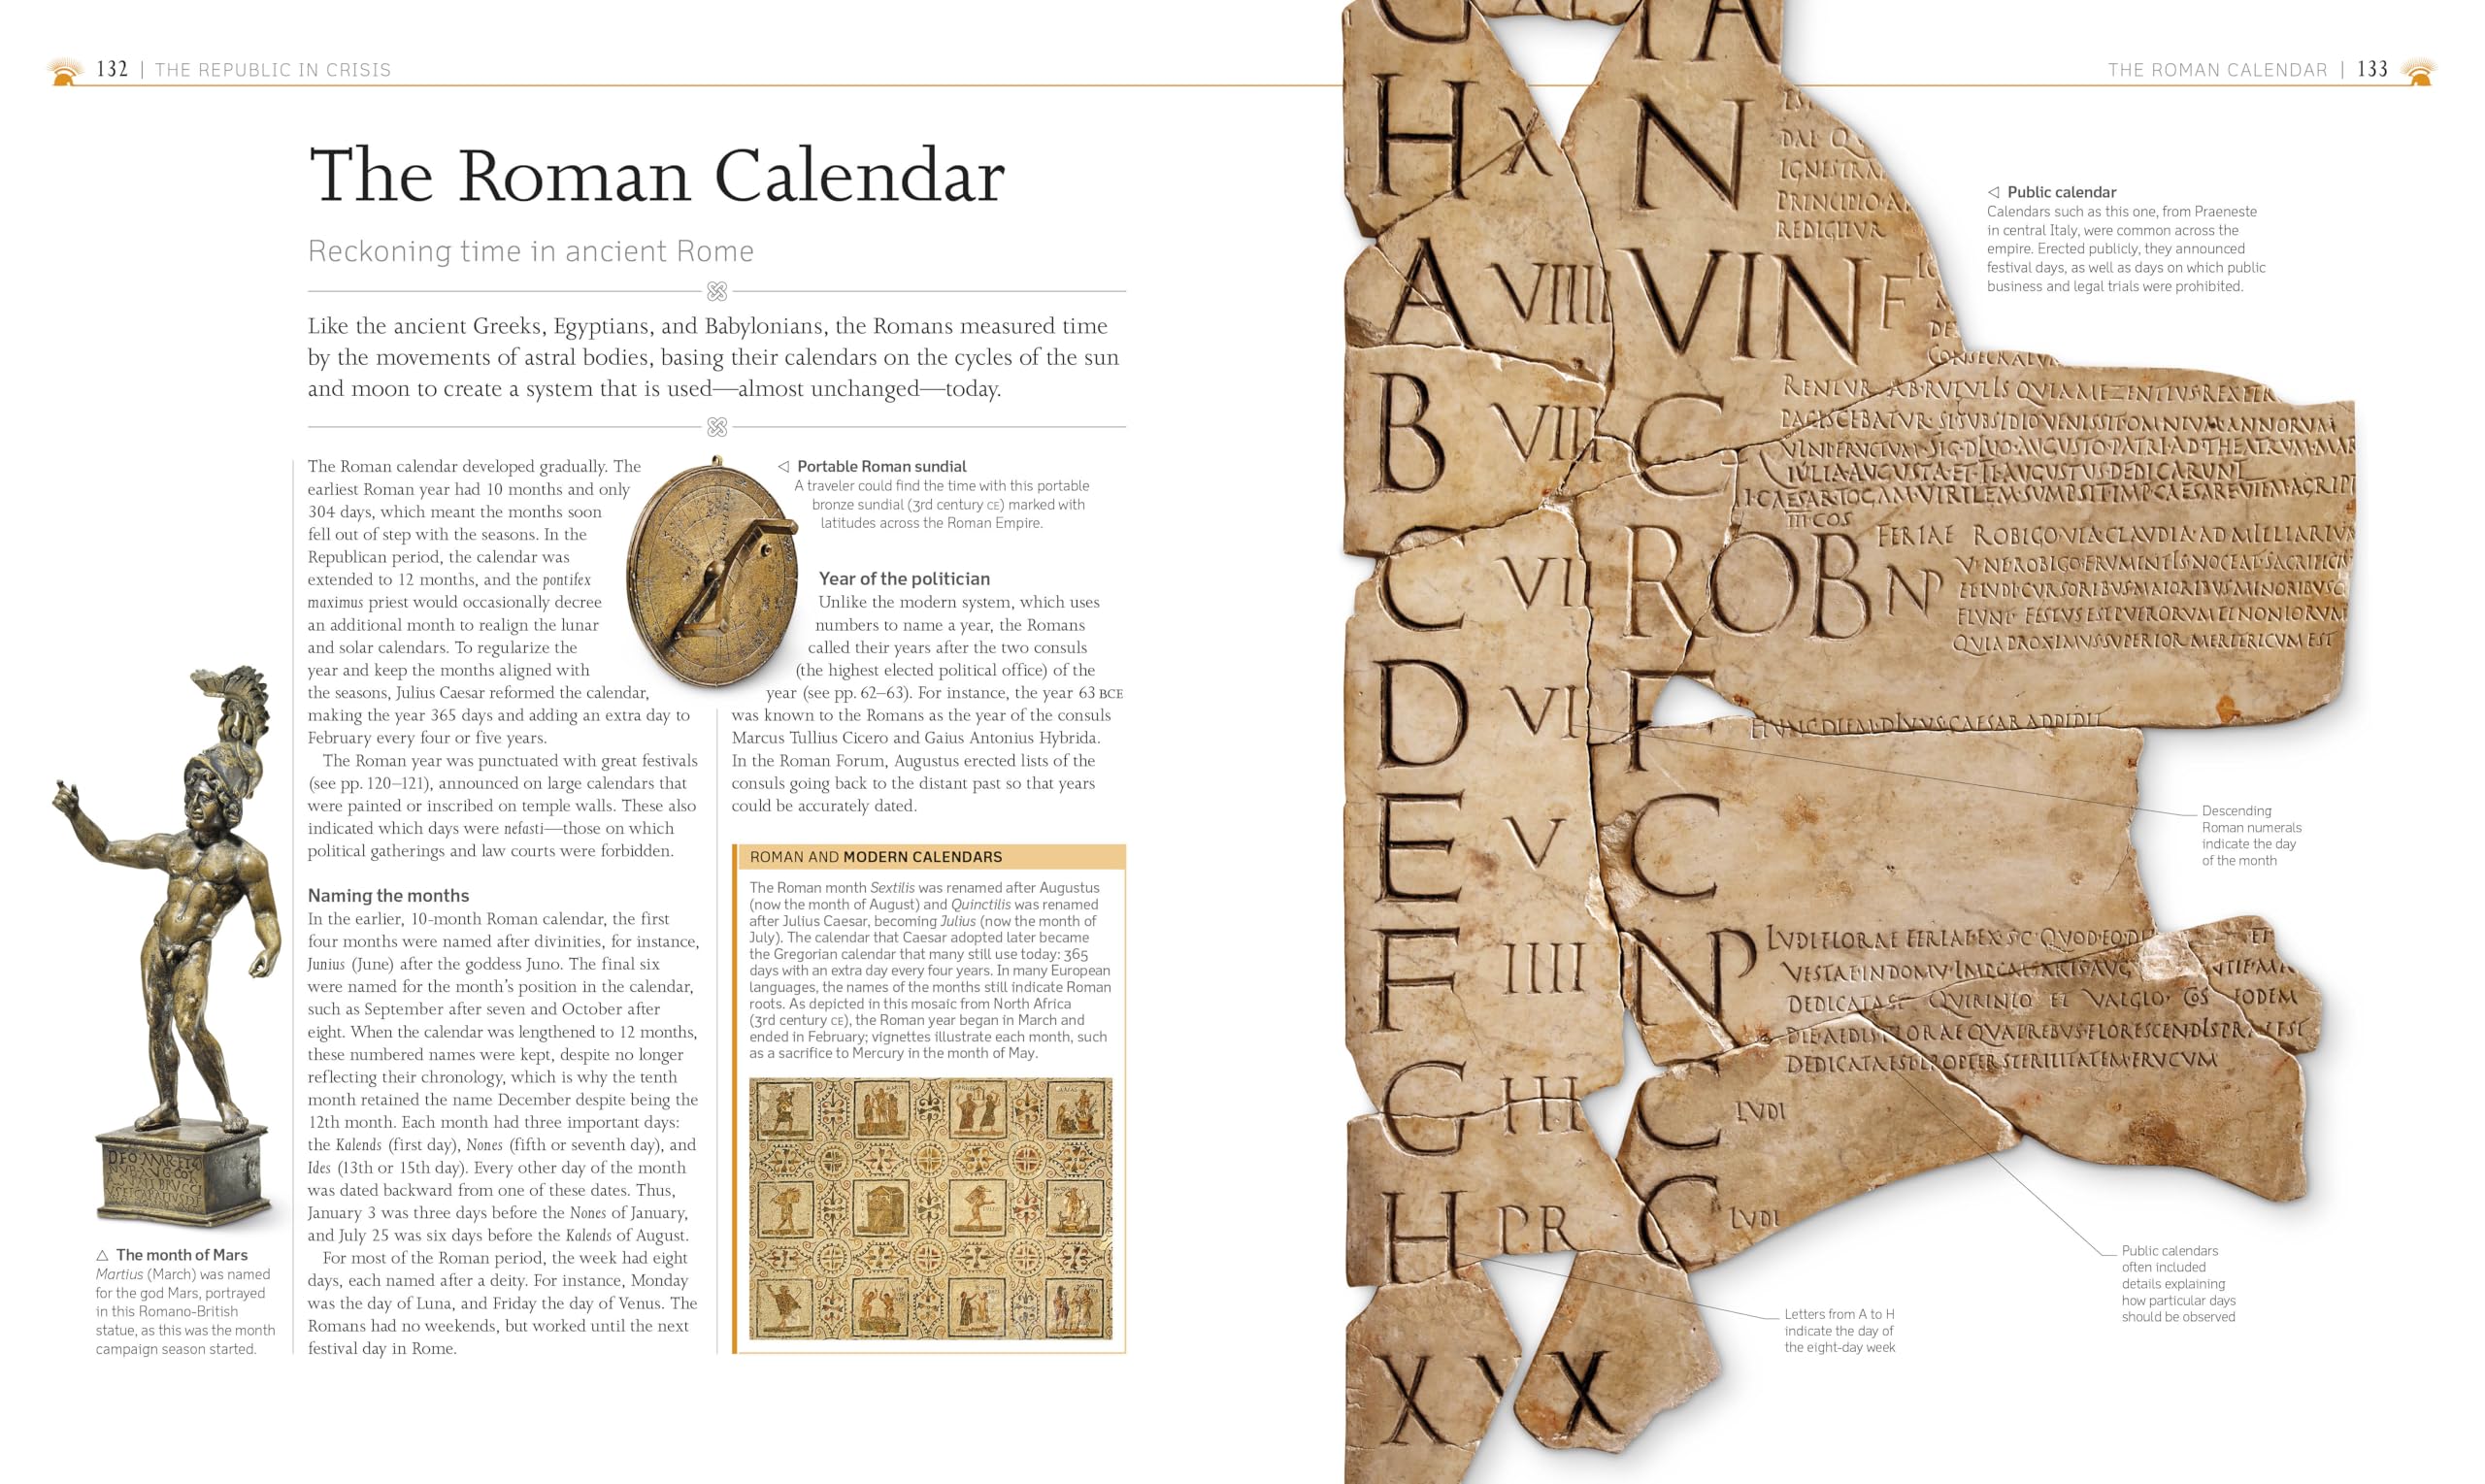 132 | THE REPUBLIC IN CRISIS
THE ROMAN CALENDAR | 133
The Roman Calendar
Reckoning time in ancient Rome
Like the ancient Greeks, Egyptians, and Babylonians, the Romans measured time
by the movements of astral bodies, basing their calendars on the cycles of the sun
and moon to create a system that is used—almost unchanged—today.
The Roman calendar developed gradually. The
earliest Roman year had 10 months and only
304 days, which meant the months soon
fell out of step with the seasons. In the
Republican period, the calendar was
extended to 12 months, and the pontifex
maximus priest would occasionally decree
an additional month to realign the lunar
and solar calendars. To regularize the
year and keep the months aligned with
the seasons, Julius Caesar reformed the calendar,
making the year 365 days and adding an extra day to
February every four or five years.
The Roman year was punctuated with great festivals
(see pp. 120–121), announced on large calendars that
were painted or inscribed on temple walls. These also
indicated which days were nefasti—those on which
political gatherings and law courts were forbidden.
Naming the months
In the earlier, 10-month Roman calendar, the first
four months were named after divinities, for instance,
Junius (June) after the goddess Juno. The final six
were named for the month's position in the calendar,
such as September after seven and October after
eight. When the calendar was lengthened to 12 months,
these numbered names were kept, despite no longer
reflecting their chronology, which is why the tenth
month retained the name December despite being the
12th month. Each month had three important days:
the Kalends (first day), Nones (fifth or seventh day), and
Ides (13th or 15th day). Every other day of the month
was dated backward from one of these dates. Thus,
January 3 was three days before the Nones of January,
and July 25 was six days before the Kalends of August.
For most of the Roman period, the week had eight
days, each named after a deity. For instance, Monday
was the day of Luna, and Friday the day of Venus. The
Romans had no weekends, but worked until the next
festival day in Rome.
◁ Portable Roman sundial
A traveler could find the time with this portable
bronze sundial (3rd century CE) marked with
latitudes across the Roman Empire.
Year of the politician
Unlike the modern system, which uses
numbers to name a year, the Romans
called their years after the two consuls
(the highest elected political office) of the
year (see pp. 62–63). For instance, the year 63 BCE
was known to the Romans as the year of the consuls
Marcus Tullius Cicero and Gaius Antonius Hybrida.
In the Roman Forum, Augustus erected lists of the
consuls going back to the distant past so that years
could be accurately dated.
ROMAN AND MODERN CALENDARS
The Roman month Sextilis was renamed after Augustus
(now the month of August) and Quinctilis was renamed
after Julius Caesar, becoming Julius (now the month of
July). The calendar that Caesar adopted later became
the Gregorian calendar that many still use today: 365
days with an extra day every four years. In many European
languages, the names of the months still indicate Roman
roots. As depicted in this mosaic from North Africa
(3rd century CE), the Roman year began in March and
ended in February; vignettes illustrate each month, such
as a sacrifice to Mercury in the month of May.
△ The month of Mars
Martius (March) was named
for the god Mars, portrayed
in this Romano-British
statue, as this was the month
campaign season started.
◁ Public calendar
Calendars such as this one, from Praeneste
in central Italy, were common across the
empire. Erected publicly, they announced
festival days, as well as days on which public
business and legal trials were prohibited.
H X N
PRINCIPIO
A VIIII VIN F
B VIII C
III COS
C VII ROB NP
FERIAE ROBIGO VIA CLAUDIA AD MILLIARIUM
D VI F
E V C
F IIII NP
DEDICATAST QUIRINIO ET VALGIO COS EODEM
G III C LVDI
H PR C LVDI
X V X
Descending
Roman numerals
indicate the day
of the month
Public calendars
often included
details explaining
how particular days
should be observed
Letters from A to H
indicate the day of
the eight-day week